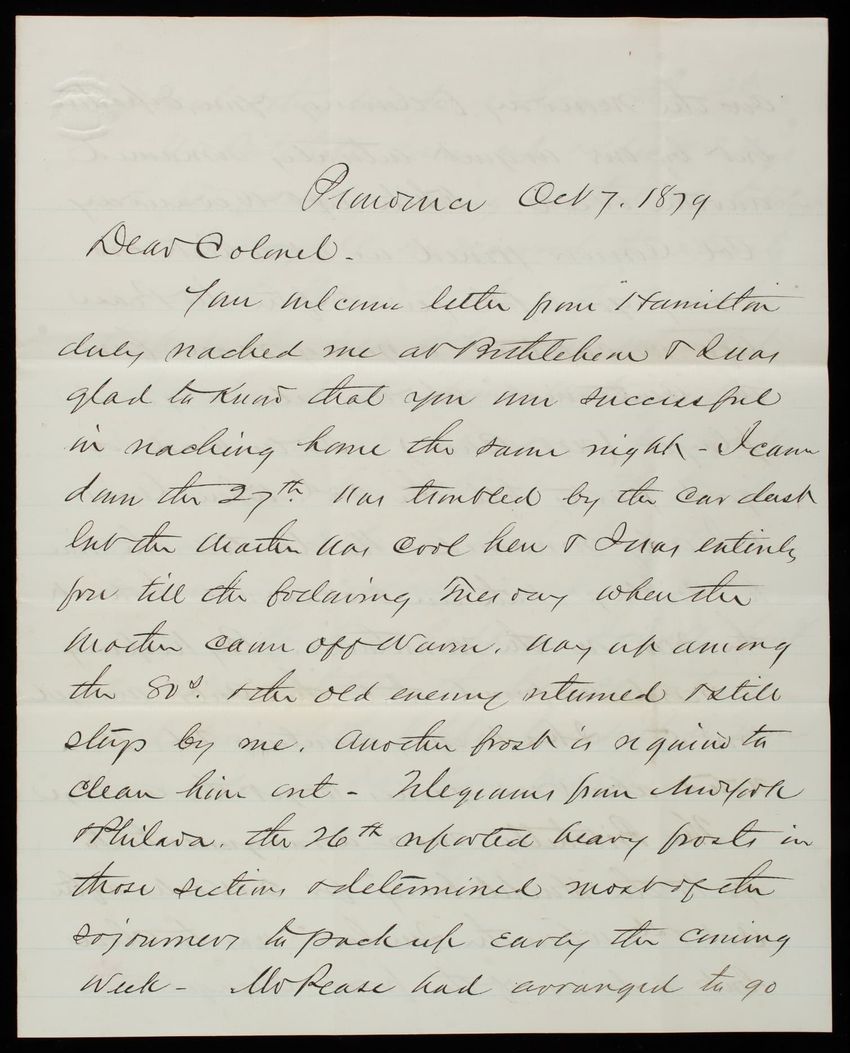 Providence Oct 7. 1879
Dear Colonel -
Your welcome letter from "Hamilton"
duly reached me at Bethlehem & I was
glad to know that you were successful
in reaching home the same night - I came
down the 27th. was troubled by the car dust
but the weather was cool here & I was entirely
free till the following Tuesday when the
weather came off warm. way up among
the 80s. & the old enemy returned & still
stops by me. Another frost is required to
clean him out - Telegrams from New York
& Philada. the 26th reported heavy frosts in
those sections & determined most of the
sojourners to pack up early the coming
week - Mr Pease had arranged to go